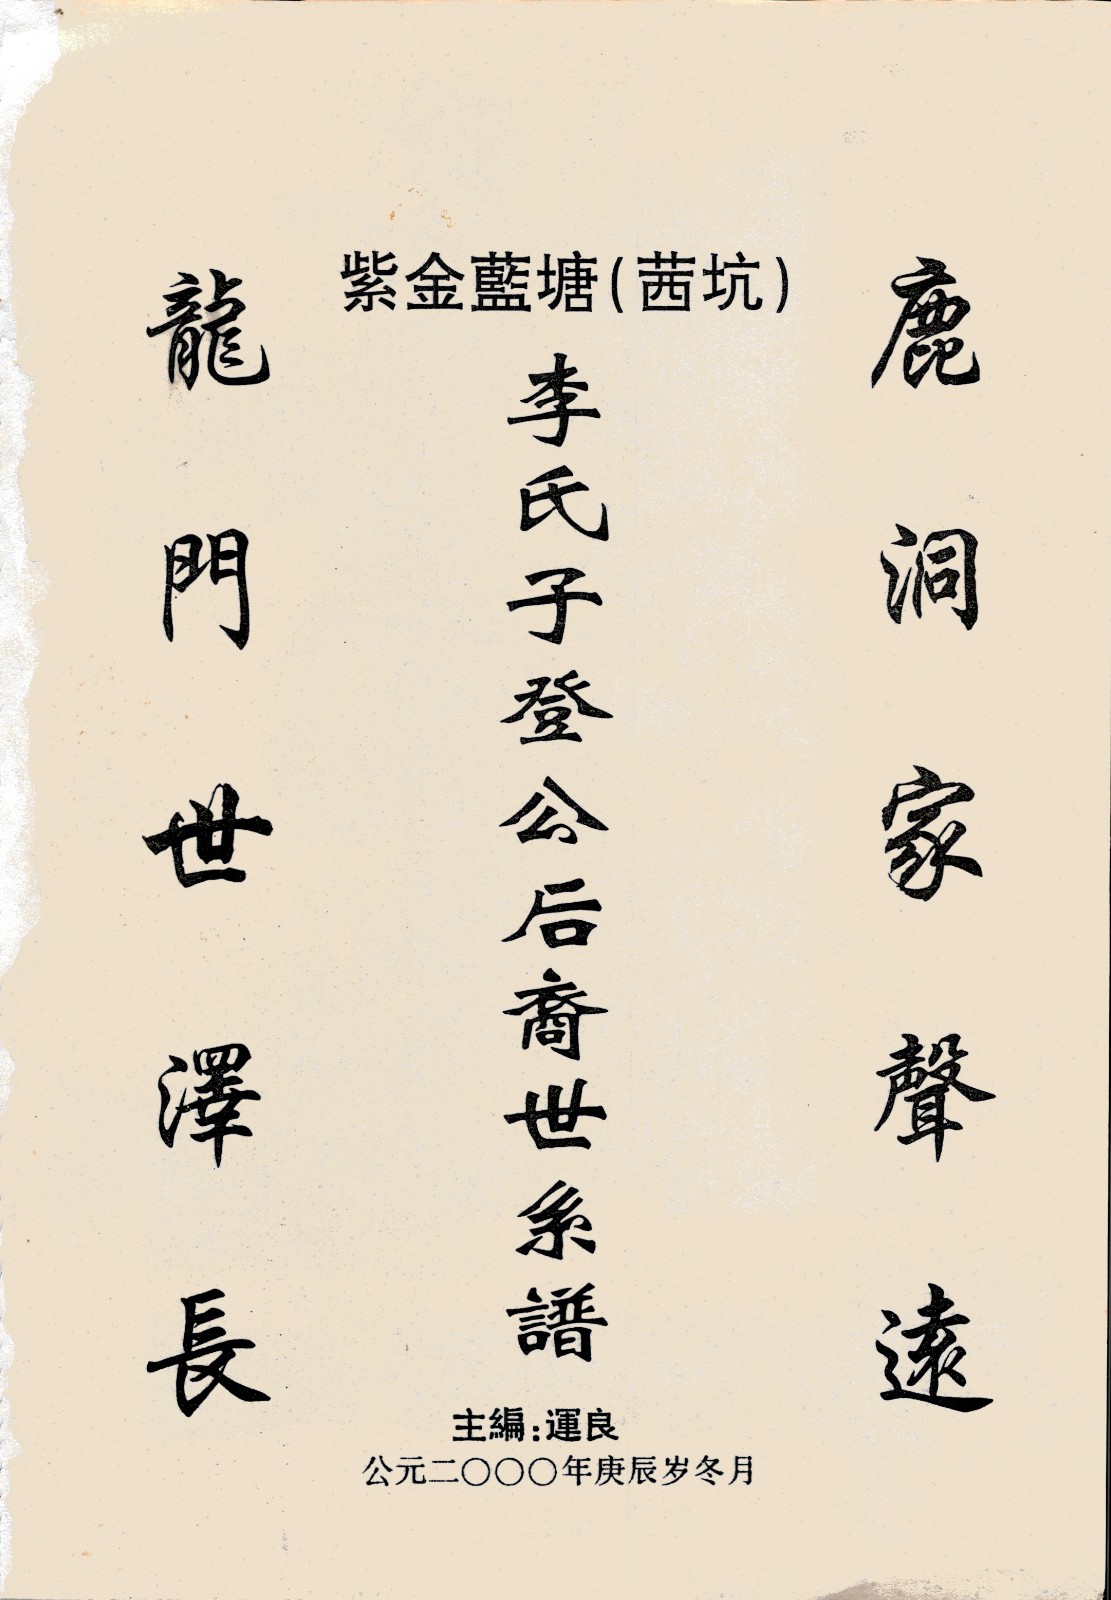 紫金藍塘(茜坑)
鹿洞家聲遠
李氏子登公后裔世系譜
龍門世澤長
主編:運良
公元二〇〇〇年庚辰岁冬月